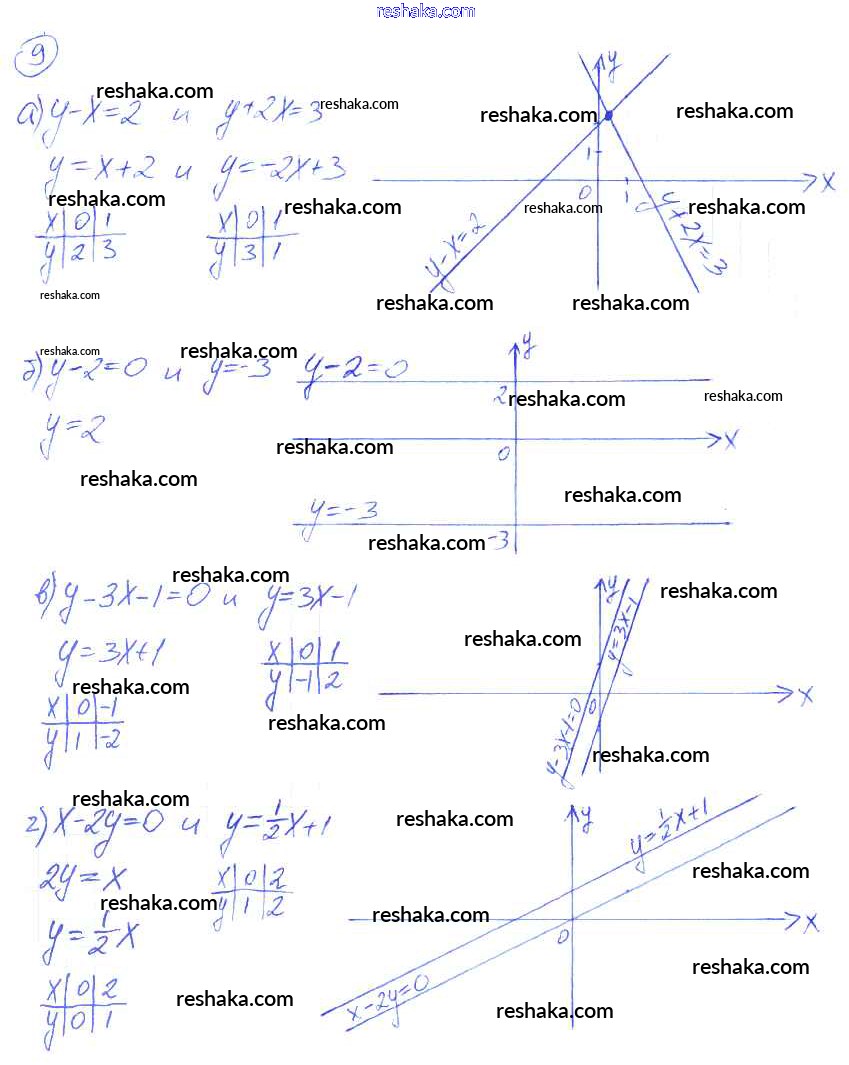 reshaka.com
9
reshaka.com reshaka.com
а) y-x=2 и y+2x=3 reshaka.com reshaka.com y
y=x+2 и y=-2x+3 1
x
reshaka.com reshaka.com 0 1 reshaka.com reshaka.com
x 0 1 x 0 1
y 2 3 y 3 1 y-x=2 y+2x=3
reshaka.com reshaka.com reshaka.com
reshaka.com reshaka.com y
б) y-2=0 и y=-3 y-2=0
2 reshaka.com reshaka.com
y=2 x
reshaka.com 0
reshaka.com reshaka.com
y=-3
reshaka.com -3
reshaka.com y reshaka.com
в) y-3x-1=0 и y=3x-1 y=3x-1
reshaka.com
y=3x+1 x 0 1
y -1 2
reshaka.com x
x 0 -1 0
reshaka.com
y 1 -2 y-3x-1=0 reshaka.com
reshaka.com
г) x-2y=0 и y=1/2x+1 reshaka.com y y=1/2x+1
2y=x x 0 2 reshaka.com
reshaka.com y 1 2 reshaka.com x
y=1/2x 0
reshaka.com
x 0 2 reshaka.com x-2y=0 reshaka.com
y 0 1